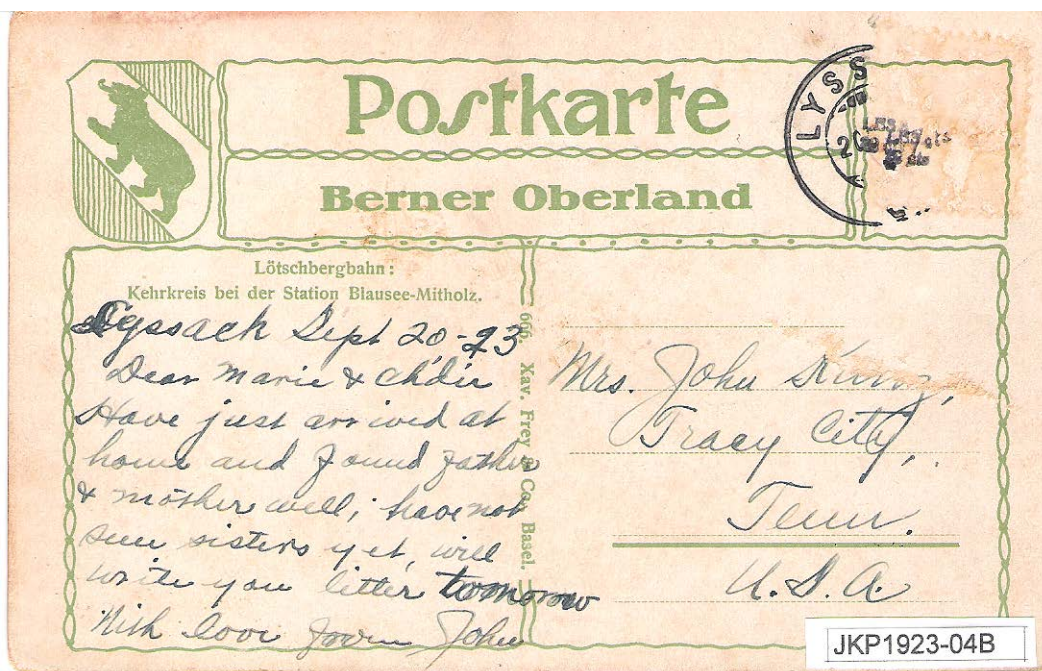 Postkarte
Berner Oberland
LYSS
Lötschbergbahn:
Kehrkreis bei der Station Blausee-Mitholz.
Lyssach Sept 20-23
Dear Marie & Chdir
Have just arrived at
home and found father
& mother well, have not
seen sisters yet, will
write you litter tomorrow
With love from John
666. Xav. Frey & Co., Basel.
Mrs. John Kunz,
Tracy City,
Tenn.
U.S.A.
JKP1923-04B